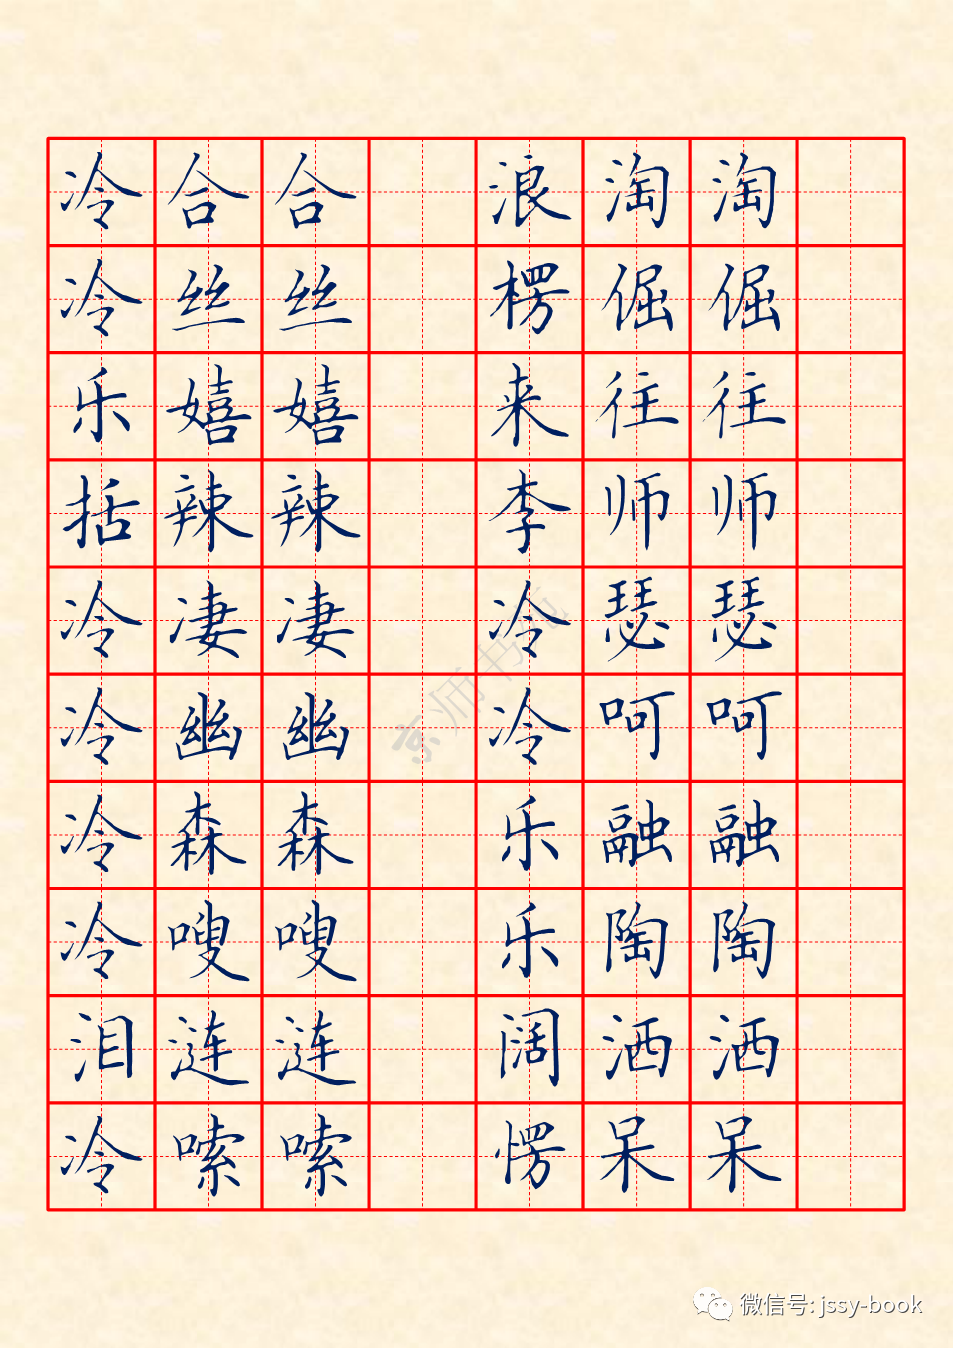 冷合合浪淘淘
冷丝丝楞倔倔
乐嬉嬉来往往
括辣辣李师师
冷凄凄冷瑟瑟
冷幽幽冷呵呵
冷森森乐融融
冷嗖嗖乐陶陶
泪涟涟阔洒洒
冷嗦嗦愣呆呆
京师书苑
微信号: jssy-book